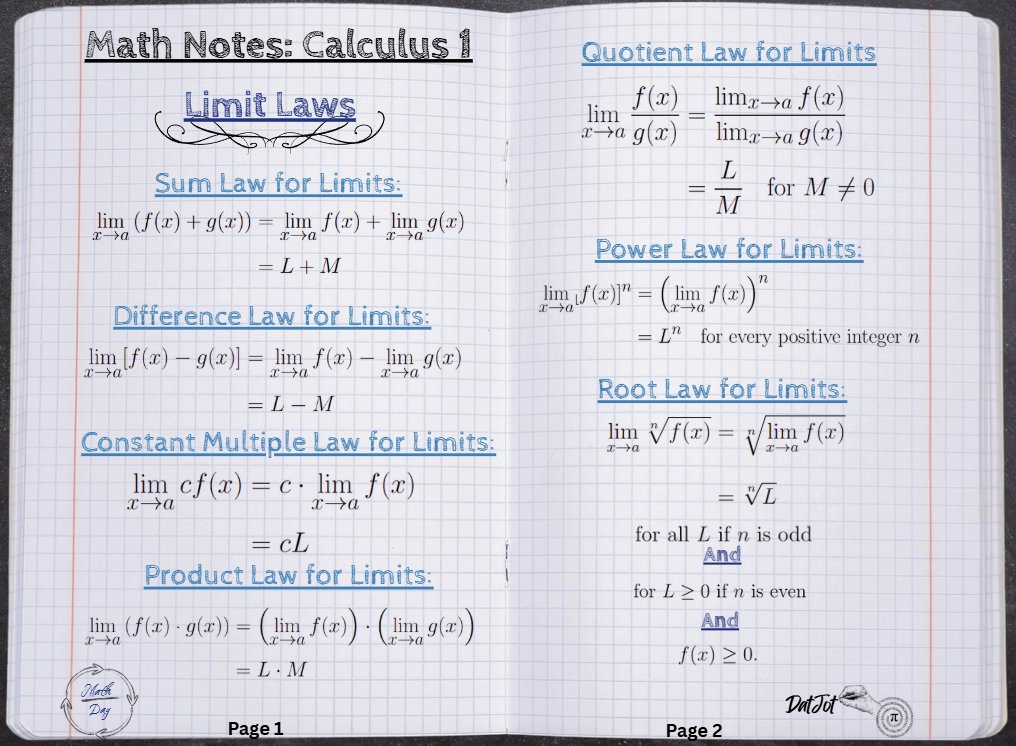 Math Notes: Calculus 1
Limit Laws
Sum Law for Limits:
lim x→a (f(x) + g(x)) = lim x→a f(x) + lim x→a g(x)
= L + M
Difference Law for Limits:
lim x→a [f(x) − g(x)] = lim x→a f(x) − lim x→a g(x)
= L − M
Constant Multiple Law for Limits:
lim x→a cf(x) = c · lim x→a f(x)
= cL
Product Law for Limits:
lim x→a (f(x) · g(x)) = (lim x→a f(x)) · (lim x→a g(x))
= L · M
Math
Day
Page 1
Quotient Law for Limits
lim x→a f(x)/g(x) = lim x→a f(x) / lim x→a g(x)
= L/M for M ≠ 0
Power Law for Limits:
lim x→a [f(x)]ⁿ = (lim x→a f(x))ⁿ
= Lⁿ for every positive integer n
Root Law for Limits:
lim x→a ⁿ√f(x) = ⁿ√lim x→a f(x)
= ⁿ√L
for all L if n is odd
And
for L ≥ 0 if n is even
And
f(x) ≥ 0.
DatJot
π
Page 2